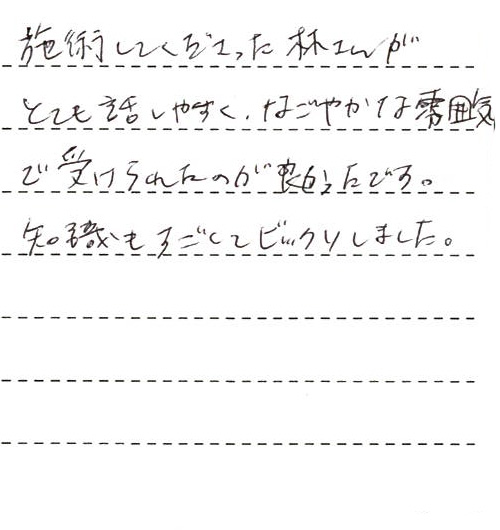 施術してくださった林さんが
とても話しやすく、なごやかな雰囲気
で受けられたのが良かったです。
知識もすごくてビックリしました。